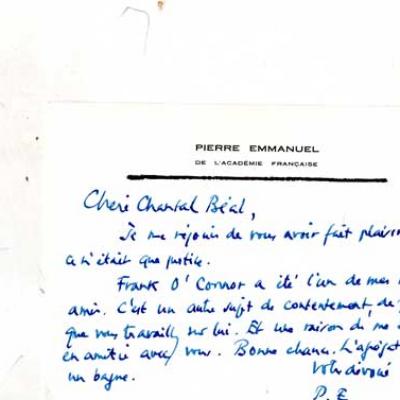 PIERRE EMMANUEL
DE L'ACADÉMIE FRANÇAISE
Chère Chantal Béal,
Je me réjouis de vous avoir fait plaisir
ce n'était que justice.
Frank O'Connor a été l'un de mes
amis. C'est un autre sujet de contentement, de
que vous travaillez sur lui. Et une raison de me
en amitié avec vous. Bonne chance. L'agrégat
un bagne.
Votre dévoué
P. E